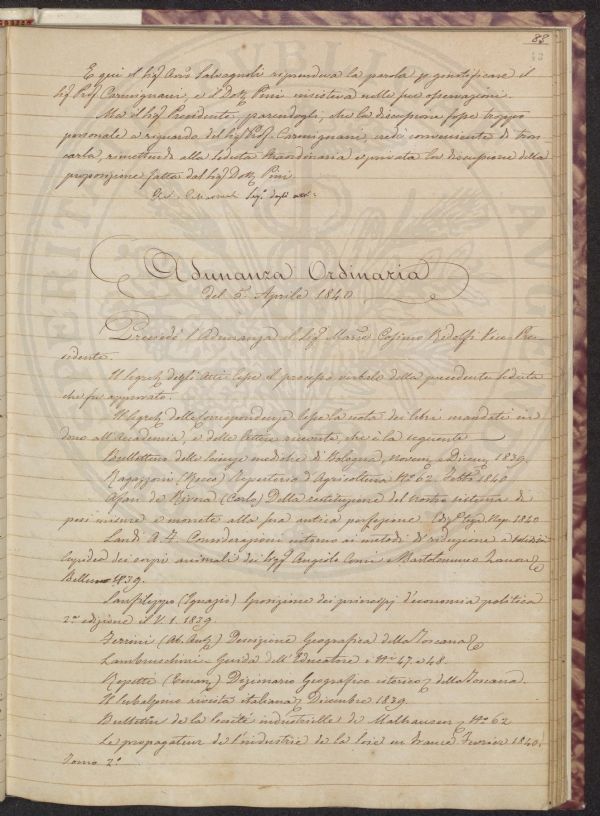 83
E qui il Sig.r Avv.o Salvagnoli riprendeva la parola p giustificare il
Sig. Prof. Carmignani, e il Dott. Pini insisteva nelle sue osservazioni.
Ma il Sig. Presidente, parendogli, che la discussione fosse troppo
personale a riguardo del Sig. Prof. Carmignani, credè conveniente di tron
carla, rimettendo alla seduta straordinaria e privata la discussione della
proposizione fatta dal Sig. Dott. Pini.
Seg.o degli atti
Adunanza Ordinaria
del 5. Aprile 1840
Presiedè l'Adunanza il Sig. March.e Cosimo Ridolfi Vice-Pre-
sidente.
Il Segret.o degli Atti lesse il processo verbale della precedente seduta
che fu approvato.
Il Segret.o delle Corrispondenze lesse la nota dei libri mandati in
dono all'Accademia, e delle lettere ricevute, che è la seguente
Bullettino delle Scienze mediche di Bologna, Novem. e Dicem. 1839.
Ragazzoni (Rocco) Repertorio d'Agricoltura N.o 62. Febb.o 1840
Afan de Rivera (Carlo) Della restituzione del nostro sistema di
pesi misure e monete alla sua antica perfezione. Ediz.e 2.a Nap. 1840
Landi A. F. Considerazioni intorno ai metodi di riduzione a solidità
lapidea dei corpi animali dei Sigg.i Angiolo Comi e Bartolommeo Zanon
Belluno 1839.
Sanfilippo (Ignazio) Sposizione dei principj d'economia politica
2.a edizione il V. 1. 1839.
Ferrini (Ab. Ant.) Descrizione Geografica della Toscana
Lambruschini - Guida dell'Educatore N.i 47. e 48.
Repetti (Eman.) Dizionario Geografico storico della Toscana.
Il Subalpino rivista italiana Dicembre 1839.
Bulletin de la Société industrielle de Malhausen N.o 62
Le propagateur de l'industrie de la soie en France Fevrier 1840.
Tomo 2.o